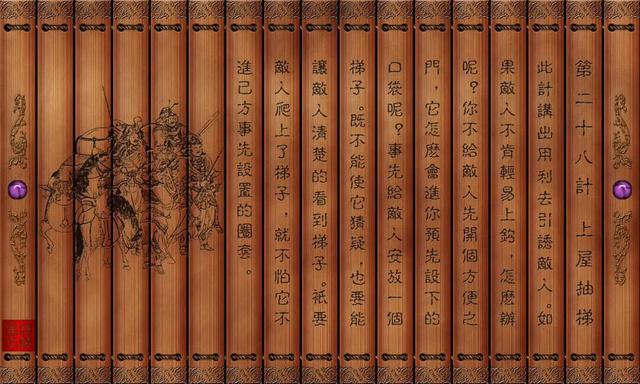 第二十八計 上屋抽梯
此計講出用利去引誘敵人。如
果敵人不肯輕易上鉤，怎麽辦
呢？你不給敵人先開個方便之
門，它怎麽會進你預先設下的
口袋呢？事先給敵人安放一個
梯子。既不能使它猜疑，也要能
讓敵人清楚的看到梯子。衹要
敵人爬上了梯子，就不怕它不
進己方事先設置的圈套。